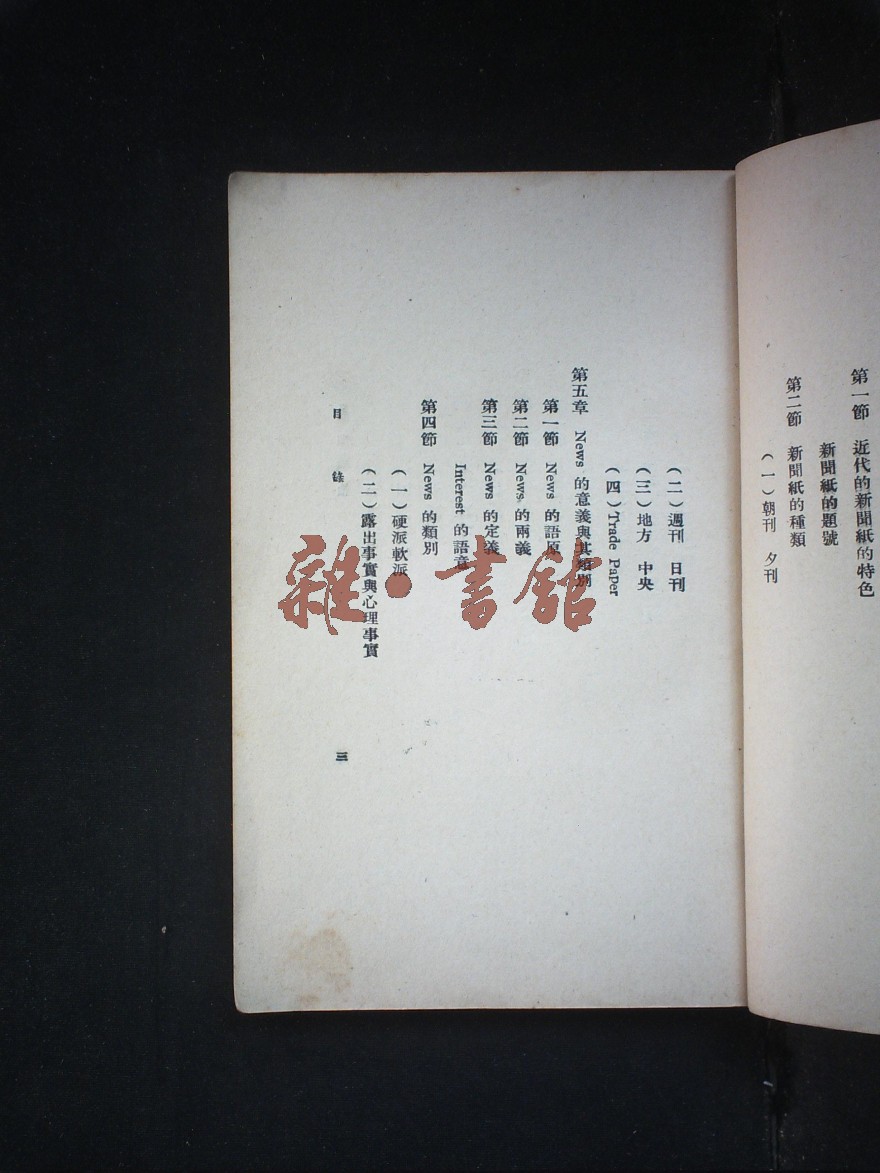 第一節　近代的新聞紙的特色
新聞紙的題號
第二節　新聞紙的種類
（一）朝刊　夕刊
（二）週刊　日刊
（三）地方　中央
（四）Trade Paper
第五章　News 的意義與其類別
第一節　News 的語原
第二節　News 的兩義
第三節　News 的定義
Interest 的語意
第四節　News 的類別
（一）硬派軟派
（二）露出事實與心理事實
目　錄
三
雜·書館